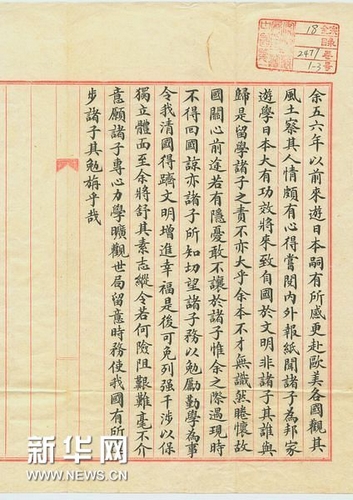 余五六年以前來遊日本嗣有所感更赴歐美各國觀其
風土察其人情頗有心得嘗閱內外報紙聞諸子為邦家
遊學日本大有功效將來致自國於文明非諸子其誰與
歸是留學諸子之責不亦大乎余本不才無識然睠懷故
國關心前途若有隱憂敢不讓於諸子惟余之際遇現時
不得回國諒亦諸子所知切望諸子務以勉勵勤學為事
令我清國得躋文明增進幸福是後可免列强干涉以保
獨立體面至余將舒其素志縱令若何險阻艱難毫不介
意願諸子專心力學曠觀世局留意時務使我國有所
步諸子其勉旃乎哉
18
2477
1-3
新华网
WWW.NEWS.CN